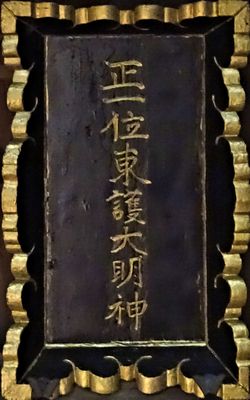 正一位東護大明神